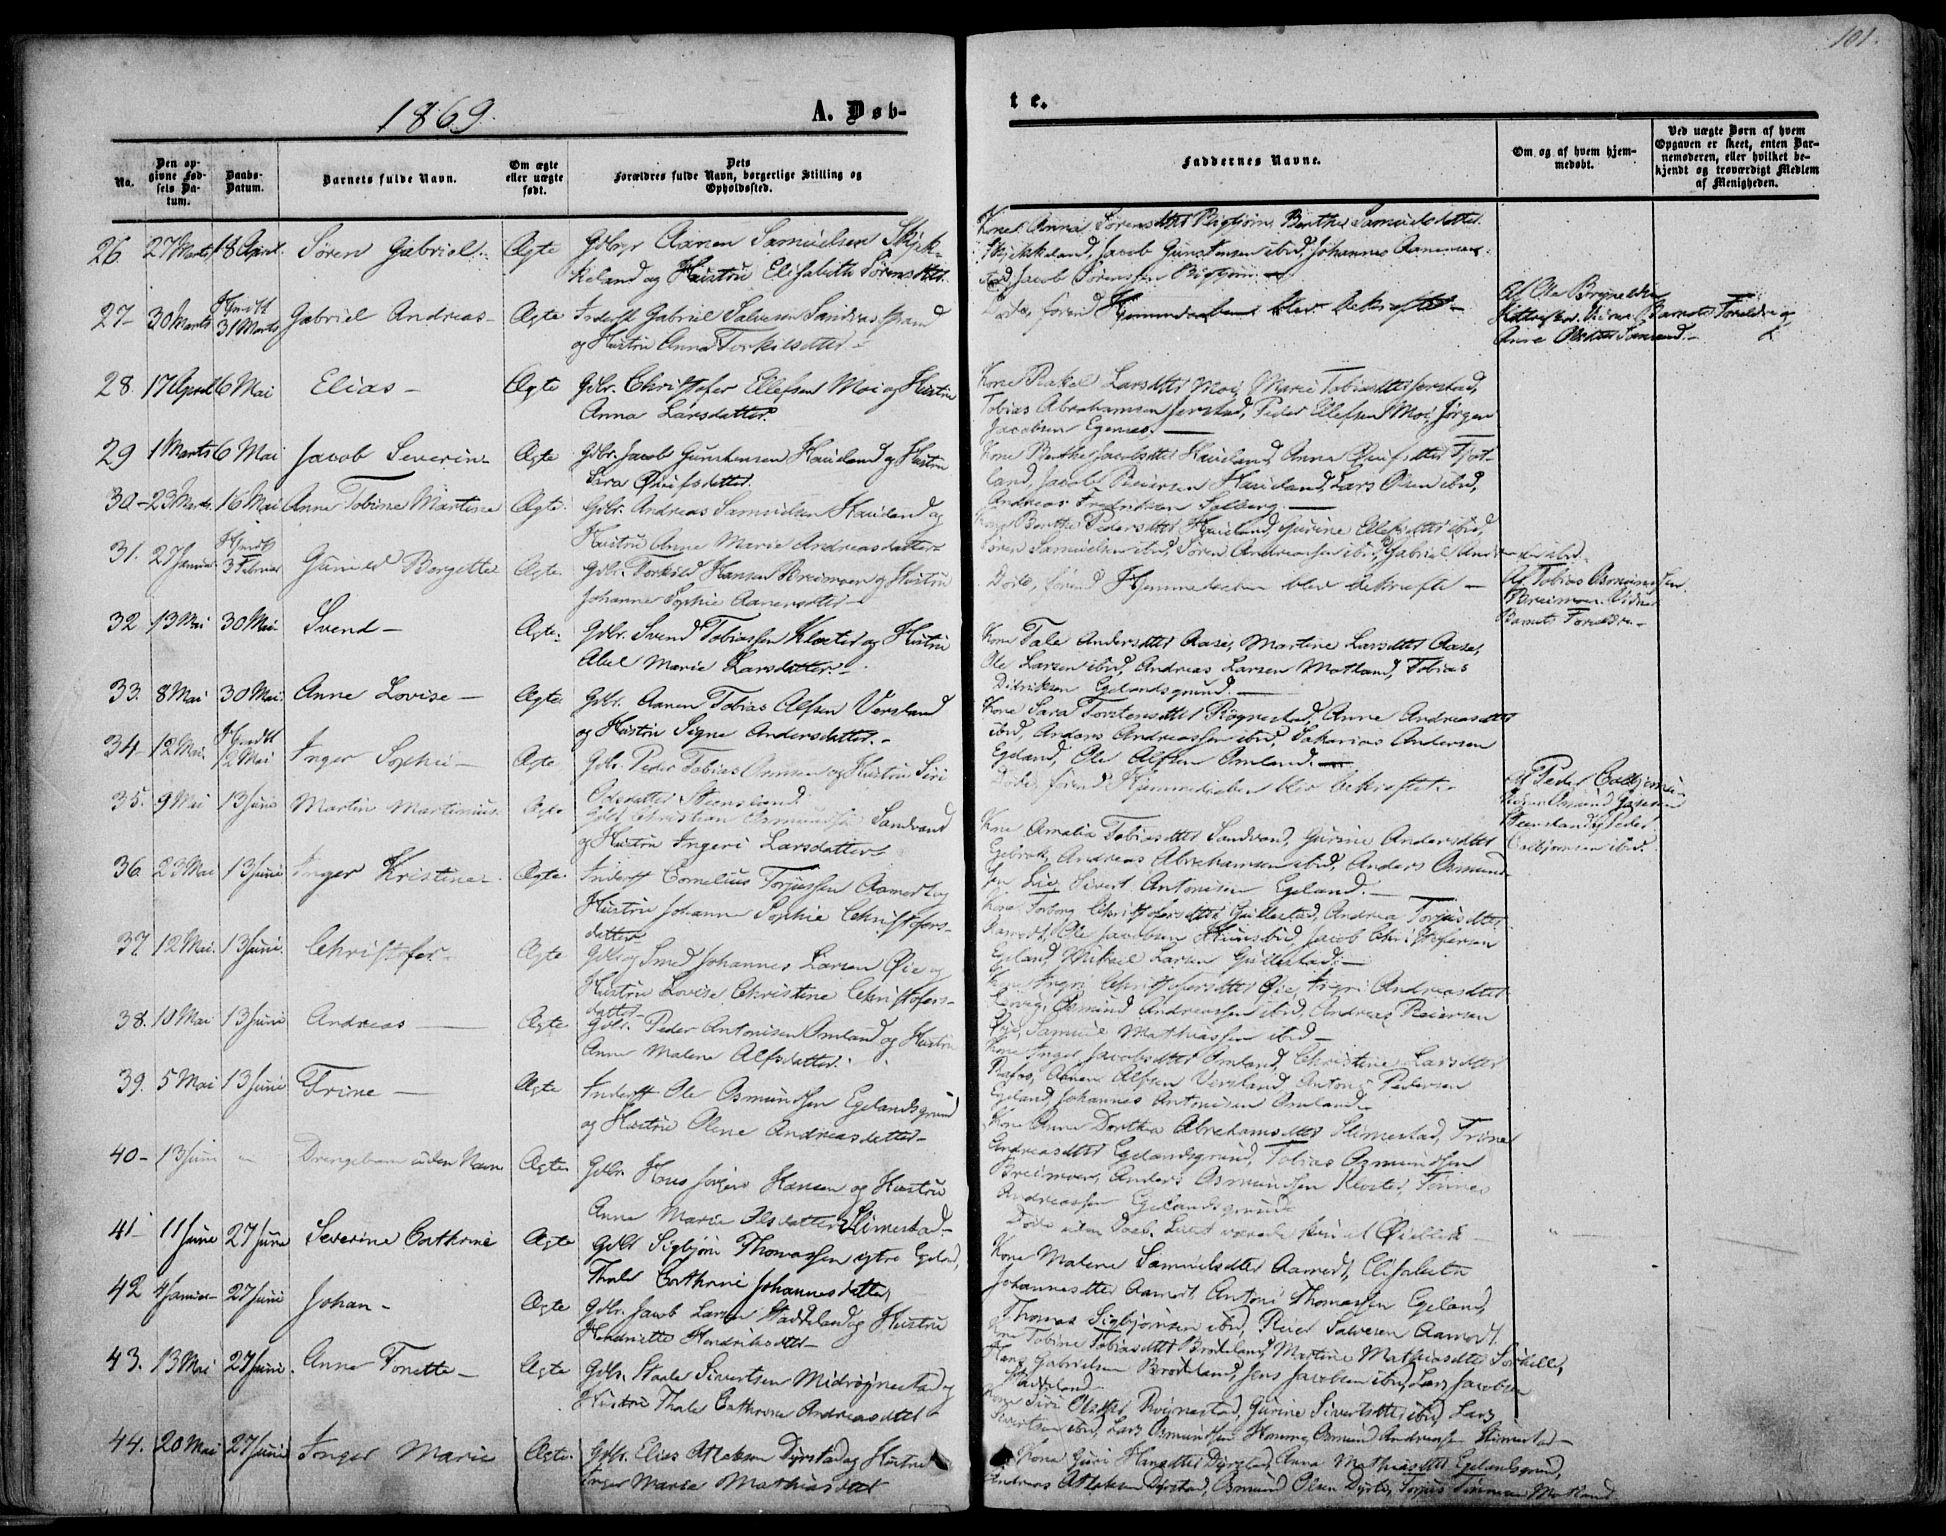 101.
1869.
A. Døb-
te.
No.
Den op-
givne Fød-
sels Da-
tum.
Daabs-
Datum.
Barnets fulde Navn.
Om ægte
eller uægte
født.
Dets
Forældres fulde Navn, borgerlige Stilling og
Opholdssted.
Faddernes Navne.
Om og af hvem hjem-
medøbt.
Ved uægte Børn af hvem
Opgaven er skeet, enten Bar-
nemoderen, eller hvilket be-
kjendt og troværdigt Medlem
af Menigheden.
26 27 Marts 18 April. Søren Gabriel. Ægte Gdbr Aanen Samuelsen Skjek-
keland og Hustru Elisabeth Sørensdtr.
Kone Anna Sørensdtter Bigtjøn, Berthe Samuelsdatter
Skjekkeland, Jacob Gunstensen ibid, Johannes Aanensen
Jacob Sørensen Bigtjøn
27- 30 Marts Hjmdt 31 Marts Gabriel Andreas- Ægte Inderst Gabriel Salvesen Sandnes
og Hustru Anna Torkilsdatter
Døde, førend Hjemmedaaben blev bekræftet -
Af Ole Brynildsen
Barnets Forældre og
Anne
28. 17 April 16 Mai Elias- Ægte Gdbr. Christofer Ellefsen Moi og Hustru
Anna Larsdatter.
Kone Rakel Larsdtter Moi, Marie Tobiasdtter Jerstad,
Tobias Abrahamsen Jerstad, Peder Ellefsen Moi, Jørgen
Jacobsen Egenes.
29 1 Marts 16 Mai Jacob Severin- Ægte Gdbr. Jacob Gunstensen Haueland og Hustru
Sira
Kone Berthe Jacobsdtter Haueland, Anna
land, Jacob Reiersen Haueland, Lars Olsen ibid,
Andreas Fredriksen Solberg.
30- 23 Marts. 16 Mai Anne Tobine Martine Ægte. Gdbr. Andreas Samuelsen Haueland og
Hustru Anne Marie Andreasdatter
Kone Berthe Pedersdtter Haueland, Gurine Ellefsdtter ibid,
Søren Samuelsen ibid, Søren Andreassen ibid, Gabriel
31. 27 Januar Hjmdt 3 Februar Gunild Borgette Ægte. Gdbr. Torkild Hansen Breimoen og Hustru
Johanne Sophie Aanensdtter-
Døde, førend Hjemmedaaben blev bekræftet -
Af Tobias Osmundsen
Breimoen. Vidner
Barnets Forældre.-
32 13 Mai 30 Mai Svend- Ægte. Gdbr. Svend Tobiassen Kloster og Hustru
Abel Marie Larsdatter.-
Kone Tale Andersdtter Aase, Martine Larsdtter Aase,
Ole Larsen ibid, Andreas Larsen Motland, Tobias
Didriksen Egelandsgrund.-
33. 8 Mai 30 Mai. Anne Lovise- Ægte. Gdbr. Aanen Tobias Alfsen Versland
og Hustru Signe Andersdatter.-
Kone Sara Torstensdtter Røgnestad, Anne Andreasdtter
ibid, Anders Andreassen ibid, Sakarias Andersen
Egeland, Ole Alfsen Omland.
34. 12 Mai. Hjmdt 12 Mai Inger Sophie- Ægte Gdbr. Peder Tobias og Hustru Siri
Osmundsdatter Steensland.
Døde, førend Hjemmedaaben blev bekræftet.-
Af Peder
Steensland, Peder
ibid.
35. 9 Mai 13 Juni Martin Martinius. Ægte Gdbr Christian Osmundsen Sandvand
og Hustru Ingeri Larsdatter
Kone Amalia Tobiasdtter Sandvand, Gurine Andersdtter
Egebrok, Andreas Abrahamsen ibid, Anders Osmund-
sen Lie, Sivert Antonisen Egeland.-
36. 23 Mai 13 Juni Inger Kristine. Ægte. Inderst Cornelius Torjussen Aamodt og
Hustru Johanne Sophie Christofers-
datter
Kone Torborg Christofersdtter Gullestad, Andrea Torjusdtter
Aamodt, Ole Jacobsen Hunsbed, Jacob Christofersen
Egeland, Mikael Larsen Gullestad.-
37. 12 Mai. 13 Juni. Christofer- Ægte Gdbr og Smed Johannes Larsen Øie og
Hustru Lovise Christine Christofers-
datter
Kone Ingri Christofersdtter Øie, Ingri Andreasdtter
Osmund Andreassen ibid, Andreas Reiersen
Øie, Samuel Mathiassen ibid -
38. 10 Mai 13 Juni Andreas - Ægte. Gdbr. Peder Antonisen Omland og Hustru
Anne Malene Alfsdatter.
Kone Inger Jacobsdtter Omland, Christine Larsdtter
Aanen Alfsen Versland, Antoni Pedersen
Egeland, Johannes Antonisen Omland.-
39. 5 Mai 13 Juni Trine - Ægte Inderst Ole Osmundsen Egelandsgrund
og Hustru Olene Andreasdatter-
Kone Anne Dorthea Abrahamsdtter Slimestad, Trine
Andreasdtter Egelandsgrund, Tobias Osmundsen
Breimoen, Anders Osmundsen Kloster, Tønnes
Andreassen Egelandsgrund
40- 13 Juni " Drengebarn uden Navn Ægte. Gdbr. Jørgen Hansen og Hustru
Anne Marie Olsdatter Slimestad-
Døde uden Daab. Livet varede kun et Øieblik -
41- 11 Juni 27 Juni Severine Cathrine Ægte Gdbr Sigbjørn Thomassen ytre Egeland,
Thale Cathrine Johannesdatter
Kone Malene Samuelsdtter Aamodt, Elisabeth
Johannesdtter Aamodt, Antoni Thomassen Egeland,
Thomas Sigbjørnsen ibid, Reier Salvesen Aamodt.
42 4 Januar- 27 Juni Johan- Ægte Gdbr. Jacob Larsen Haddeland og Hustru
Henriette Hendriksdtter-
Kone Tobine Tobiasdtter Brødeland, Martine Mathiasdtter
Hans Gabrielsen Brødeland, Jens Jacobsen ibid, Lars Jacobsen
Haddeland-
43. 13 Mai 27 Juni. Anne Tonette- Ægte Gdbr. Staale Sivertsen Midrøgnestad og
Hustru Thale Cathrine Andreasdtter
Kone Siri Olsdtter Røgnestad, Gurine Sivertsdtter ibid, Lars
Sivertsen ibid, Lars Osmundsen Homme, Osmund Andreassen Slimestad-
44. 20 Mai 27 Juni Inger Marie Ægte. Gdbr. Elias Atlaksen Dyrstad og Hustru
Inger Marie Mathiasdtter
Kone Guri Hansdtter Dyrstad, Anna Mathiasdtter Egelandsgrund,
Andreas Atlaksen Dyrstad, Osmund Olsen Torjus Tønnesen Motland